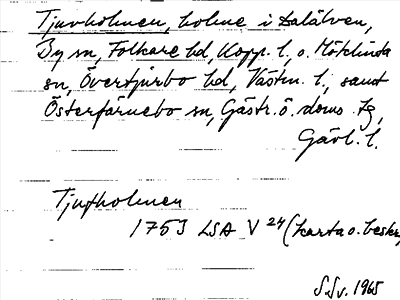 Tjuvholmen, holme i Dalälven,
By sn, Folkare hd, Kopp. l., o. Möklinta
sn, Övertjurbo hd, Västm. l., samt
Österfärnebo sn, Gästr. ö. doms. tg,
Gävl. l.
Tjufholmen
1753 LSA V 24 (karta o. beskr.
S. Sv. 1965